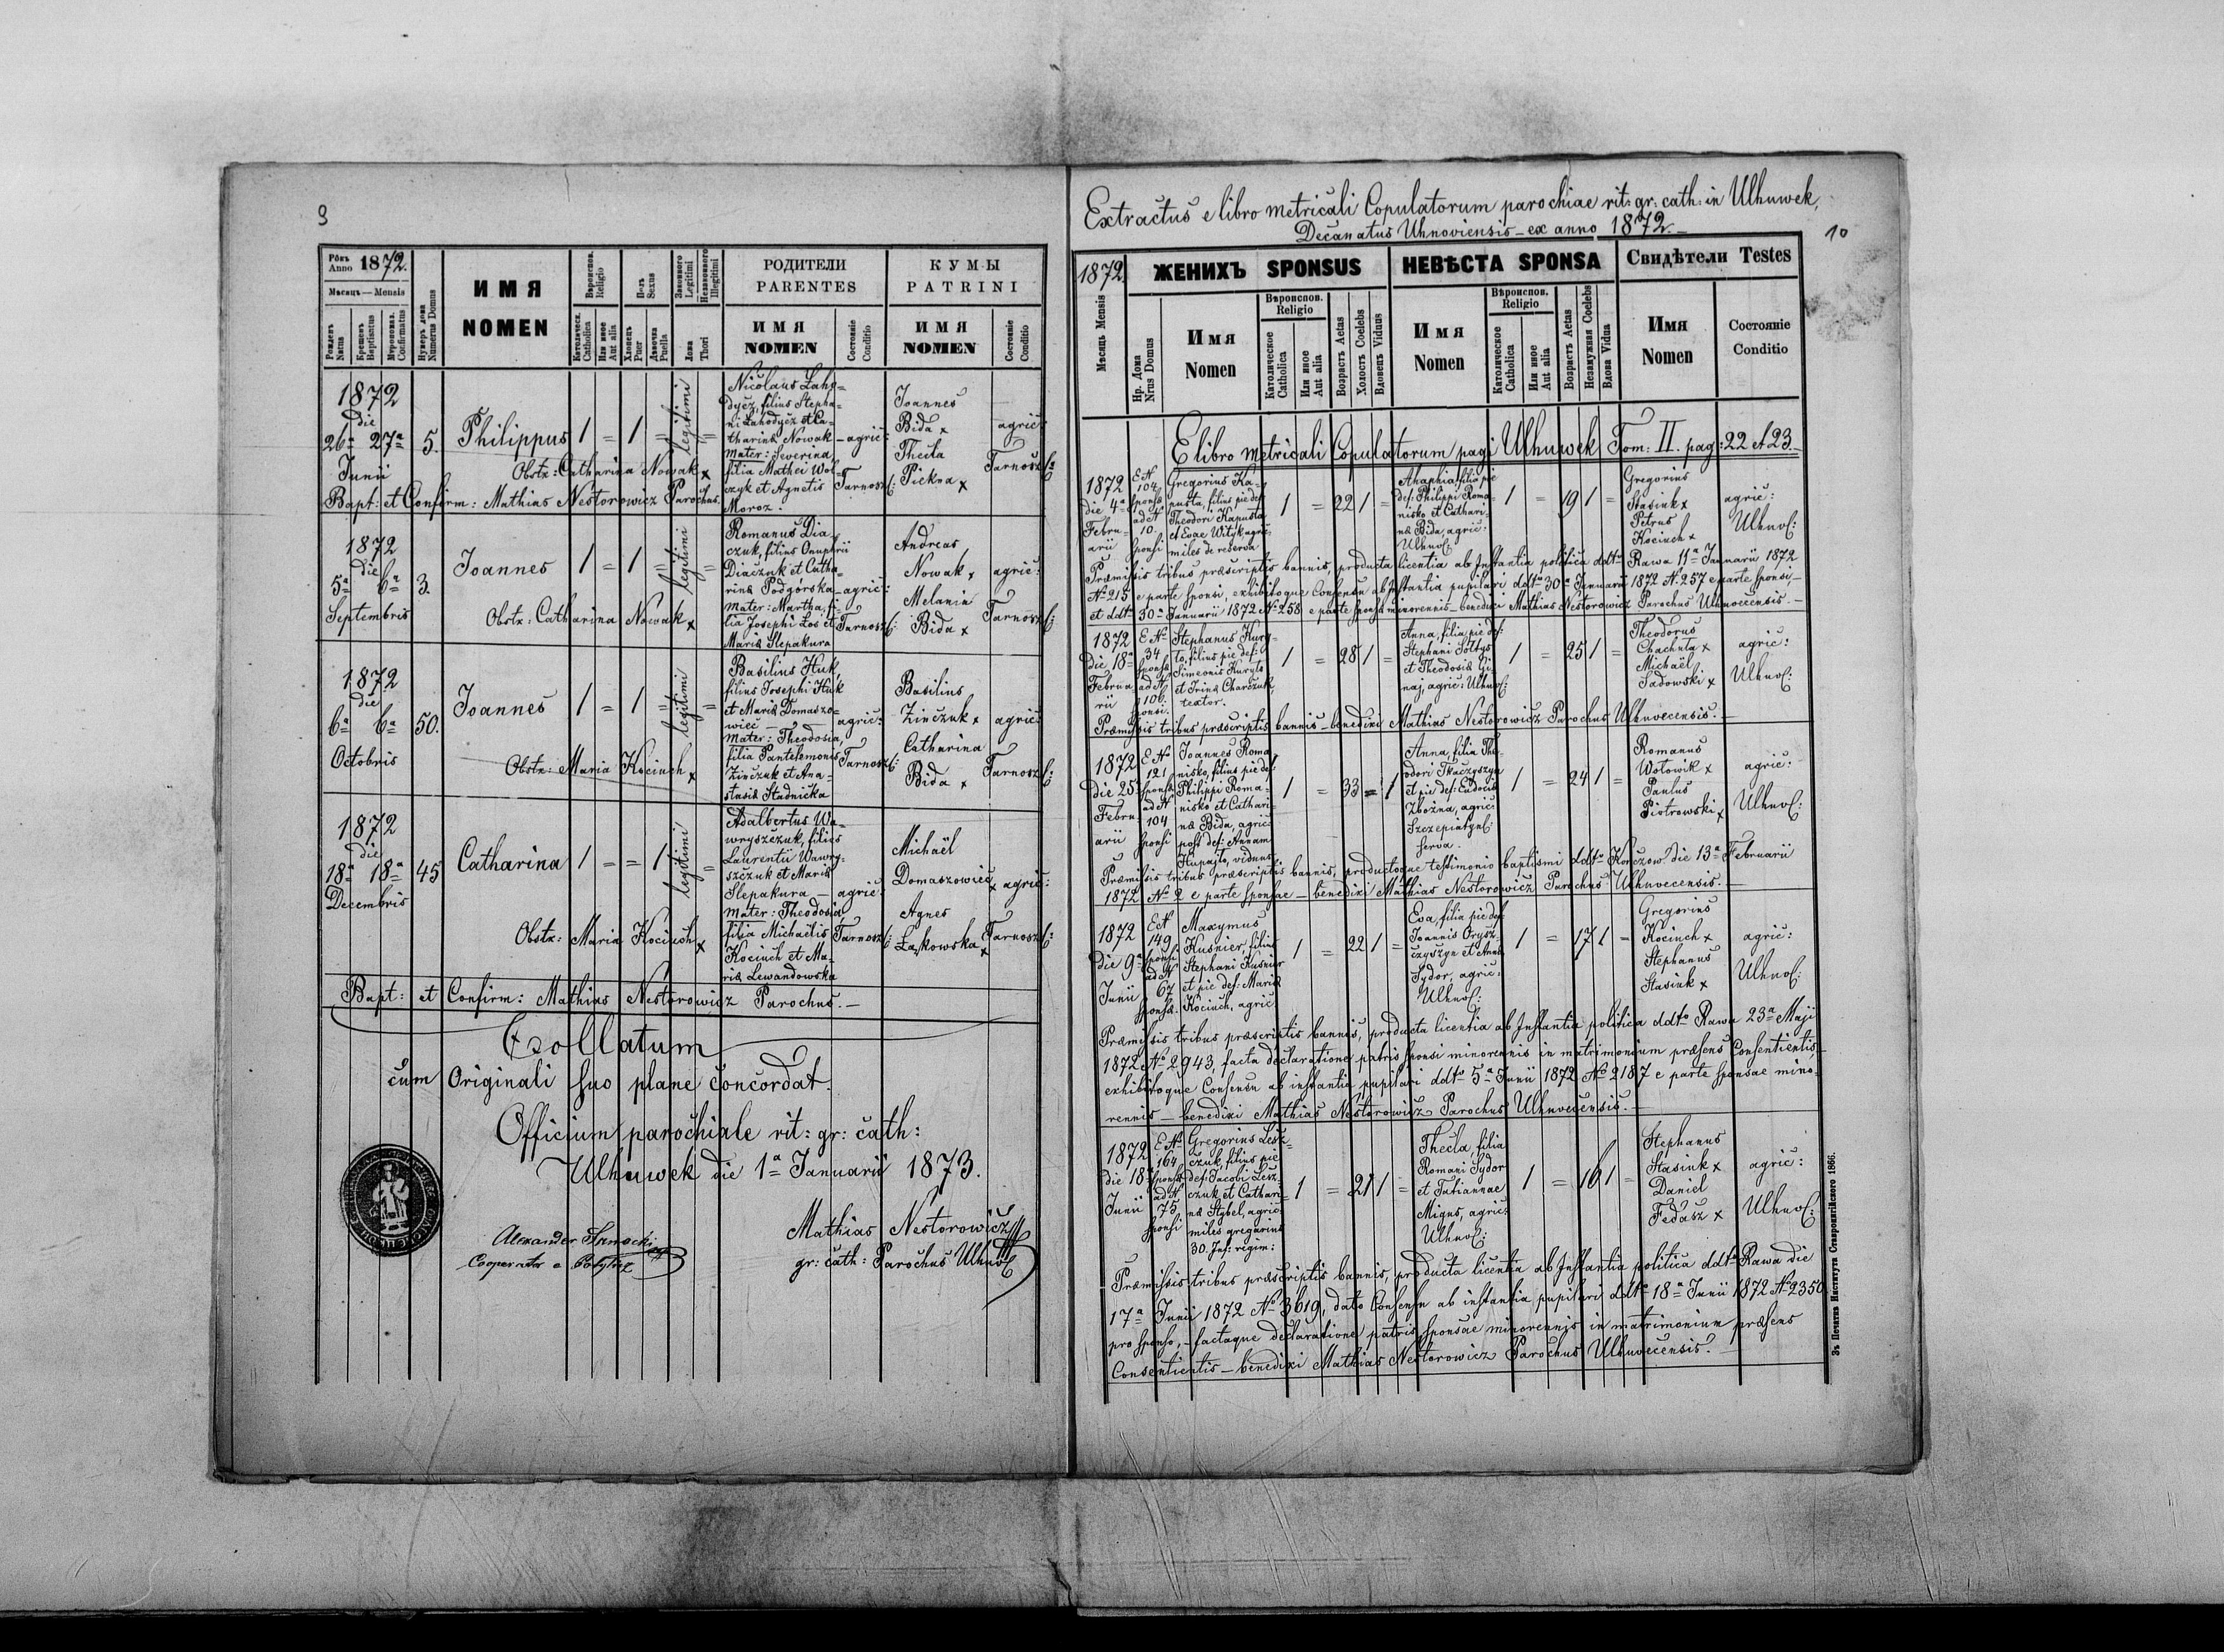 9
Рôкъ Anno 1872.
Мѣсяць — Mensis
Рожденъ Natus
Крещенъ Baptisatus
Мѵропомаз. Confirmatus
Нумеръ дома Numerus Domus
ИМЯ
NOMEN
Вѣроиспов. Religio
Католическ. Catholica
Или иное Aut alia
Полъ Sexus
Хлопецъ Puer
Дѣвочка Puella
Законного Legitimi
Незаконного Illegitimi
Ложа Thori
РОДИТЕЛИ
PARENTES
ИМЯ
NOMEN
Состояніе Conditio
КУМЫ
PATRINI
ИМЯ
NOMEN
Состояніе Conditio
1872
die
26ª 27ª
Junii
5.
Philippus
1 = 1 = legitimi =
Nicolaus Laho=
dycz, filius Stepha=
ni Lahodycz et Ca=
tharinæ Nowak — agric:
Mater: Severina
filia Mathei Wol=
czyk et Agnetis Tarnosz:
Moroz.
Joannes
Bida x
Thecla
Pickna x
agric:
Tarnosz:
Obstx: Catharina Nowak x
Bapt: et Confirm: Mathias Nestorowicz Parochus.
1872
die
5ª 6ª
Septembris
3.
Joannes
1 = 1 = legitimi =
Romanus Dia=
czuk, filius Onuphrii
Diaczuk et Catha=
rinæ Podgórska — agric:
Mater: Martha, fi=
lia Josephi Łos et Tarnosz:
Mariæ Slepakura
Andreas
Nowak x
Melania
Bida x
agric:
Tarnosz:
Obstx: Catharina Nowak x
1872
die
6ª 6ª
Octobris
50.
Joannes
1 = 1 = legitimi =
Basilius Huk,
filius Josephi Huk
et Mariæ Domaszo=
wiec — agric:
Mater: Theodosia,
filia Pantelemonis Tarnosz:
Zinczuk et Ana=
stasiæ Stadnicka
Basilius
Zinczuk x
Catharina
Bida x
agric:
Tarnosz:
Obstx: Maria Kociuch x
1872
die
18ª 18ª
Decembris
45
Catharina
1 = = 1 legitimi =
Adalbertus Wa=
wryszczuk, filius
Laurentii Wawry=
szczuk et Mariæ
Slepakura — agric:
Mater: Theodosia,
filia Michaëlis Tarnosz:
Kociuch et Ma=
riæ Lewandowska
Michaël
Domaszowiec x
Agnes
Laskowska x
agric:
Tarnosz:
Obstx: Maria Kociuch x
Bapt: et Confirm: Mathias Nestorowicz Parochus. —
Collatum
cum Originali suo plane concordat.
Officium parochiale rit: gr: cath:
Ulhuwek die 1ª Januarii 1873.
Mathias Nestorowicz
gr: cath: Parochus Ulhuv:
Alexander
Cooperator e
Extractus e libro metricali Copulatorum parochiae rit: gr: cath: in Ulhuwek,
Decanatus Uhnoviensis — ex anno 1872. —
10
1872.
Мѣсяць Mensis
ЖЕНИХЪ SPONSUS
Нр. Дома Nrus Domus
Имя
Nomen
Вѣроиспов.
Religio
Католическое Catholica
Или иное Aut alia
Возрастъ Aetas
Холостъ Coelebs
Вдовецъ Viduus
НЕВѢСТА SPONSA
Имя
Nomen
Вѣроиспов.
Religio
Католическое Catholica
Или иное Aut alia
Возрастъ Aetas
Незамужная Coelebs
Вдова Vidua
Свидѣтели Testes
Имя
Nomen
Состояніе
Conditio
E libro metricali Copulatorum pagi Ulhuwek Tom: II. pag: 22 et 23. —
1872
die 4ª
Febru=
arii
E N
104
sponsæ
ad N
10.
sponsi
Gregorius Ka=
pusta, filius pie def:
Theodori Kapusta
et Evae Wityk agric:
miles de reserva
1 = 22 1 =
Ahaphia, filia pie
def: Philippi Roma=
nisko et Cathari=
næ Bida, agric:
Ulhuv:
1 = 19 1 =
Gregorius
Stasiuk x
Petrus
Kociuch x
agric:
Ulhuv:
Præmissis tribus præscriptis bannis, producta licentia ab Instantia politica ddtº Rawa 11ª Januarii 1872
Nº 215 e parte sponsi, exhibitoque Consensu ab Instantia pupilari ddtº 30ª Januarii 1872 N. 257 e parte sponsi —
et ddtº 30ª Januarii 1872 Nº 258 e parte sponsæ minorennis — benedixi Mathias Nestorowicz Parochus Ulhuvecensis. —
1872
Die 18ª
Februa
rii
E Nº
34
sponsæ
ad N
106.
sponsi.
Stephanus Kury=
to, filius pie def:
Simeonis Kuryto
et Irinæ Charczuk
textor.
1 = 28 1 =
Anna, filia pie def:
Stephani Soltys
et Theodosiæ Gi=
naj, agric: Ulhuv:
1 = 25 1 =
Theodorus
Chachuta x
Michaël
Sadowski x
agric:
Ulhuv:
Præmissis tribus præscriptis bannis — benedixi Mathias Nestorowicz Parochus Ulhuvecensis. —
1872
Die 25ª
Febru=
arii
E N
121
sponsæ
ad N
104
sponsi
Joannes Roma=
nisko, filius pie def:
Philippi Roma=
nisko et Cathari=
næ Bida, agric:
post def: Annam
Hupalo, viduus
1 = 33 = 1
Anna, filia The=
odori Tkaczyszyn
et pie def: Eudociæ
Zbožna, agric:
Szczepiatyn:
serva.
1 = 24 1 =
Romanus
Wolowik x
Paulus
Piotrowski x
agric:
Ulhuv:
Præmissis tribus præscriptis bannis, productoque testimonio baptismi ddtº Korczow die 13ª Februarii
1872 Nº 2 e parte sponsae — benedixi Mathias Nestorowicz Parochus Ulhuvecensis. —
1872
die 9ª
Junii
E N
149
sponsi
ad N
67
sponsæ.
Maxymus
Kusnier, filius
Stephani Kusnier
et pie def: Mariæ
Kociuch, agric:
1 = 22 1 =
Eva, filia pie def:
Joannis Orysz=
czyszyn et Annæ
Sydor, agric:
Ulhuv:
1 = 17 1 =
Gregorius
Kociuch x
Stephanus
Stasiuk x
agric:
Ulhuv:
Præmissis tribus præscriptis bannis, producta licentia ab Instantia politica ddtº Rawa 23ª Maji
1872 Nº 2943, facta declaratione patris sponsi minorennis in matrimonium præsens Consentientis,
exhibitoque Consensu ab instantia pupilari ddtº 5ª Junii 1872 Nº 2187 e parte sponsae mino=
rennis — benedixi Mathias Nestorowicz Parochus Ulhuvecensis. —
1872
die 18ª
Junii
E Nº
164
sponsæ
ad N
75
sponsi
Gregorius Lesz=
czuk, filius pie
def: Jacobi Lesz=
czuk et Cathari=
næ Stybel, agric:
miles gregarius
30. Inf: regim:
1 = 21 1 =
Thecla, filia
Romani Sydor
et Tatiannae
Migus, agric:
Ulhuv:
1 = 16 1 =
Stephanus
Stasiuk x
Daniel
Fedasz x
agric:
Ulhuv:
Præmissis tribus præscriptis bannis, producta licentia ab Instantia politica ddtº Rawa die
17ª Junii 1872 Nº 3619, dato Consensu ab instantia pupilari ddtº 18ª Junii 1872 Nº 2350
pro sponso, — factaque declaratione patris sponsae minorennis in matrimonium præsens
Consentientis — benedixi Mathias Nestorowicz Parochus Ulhuvecensis. —
Зъ Печатнѣ Института Ставропигійского 1866.